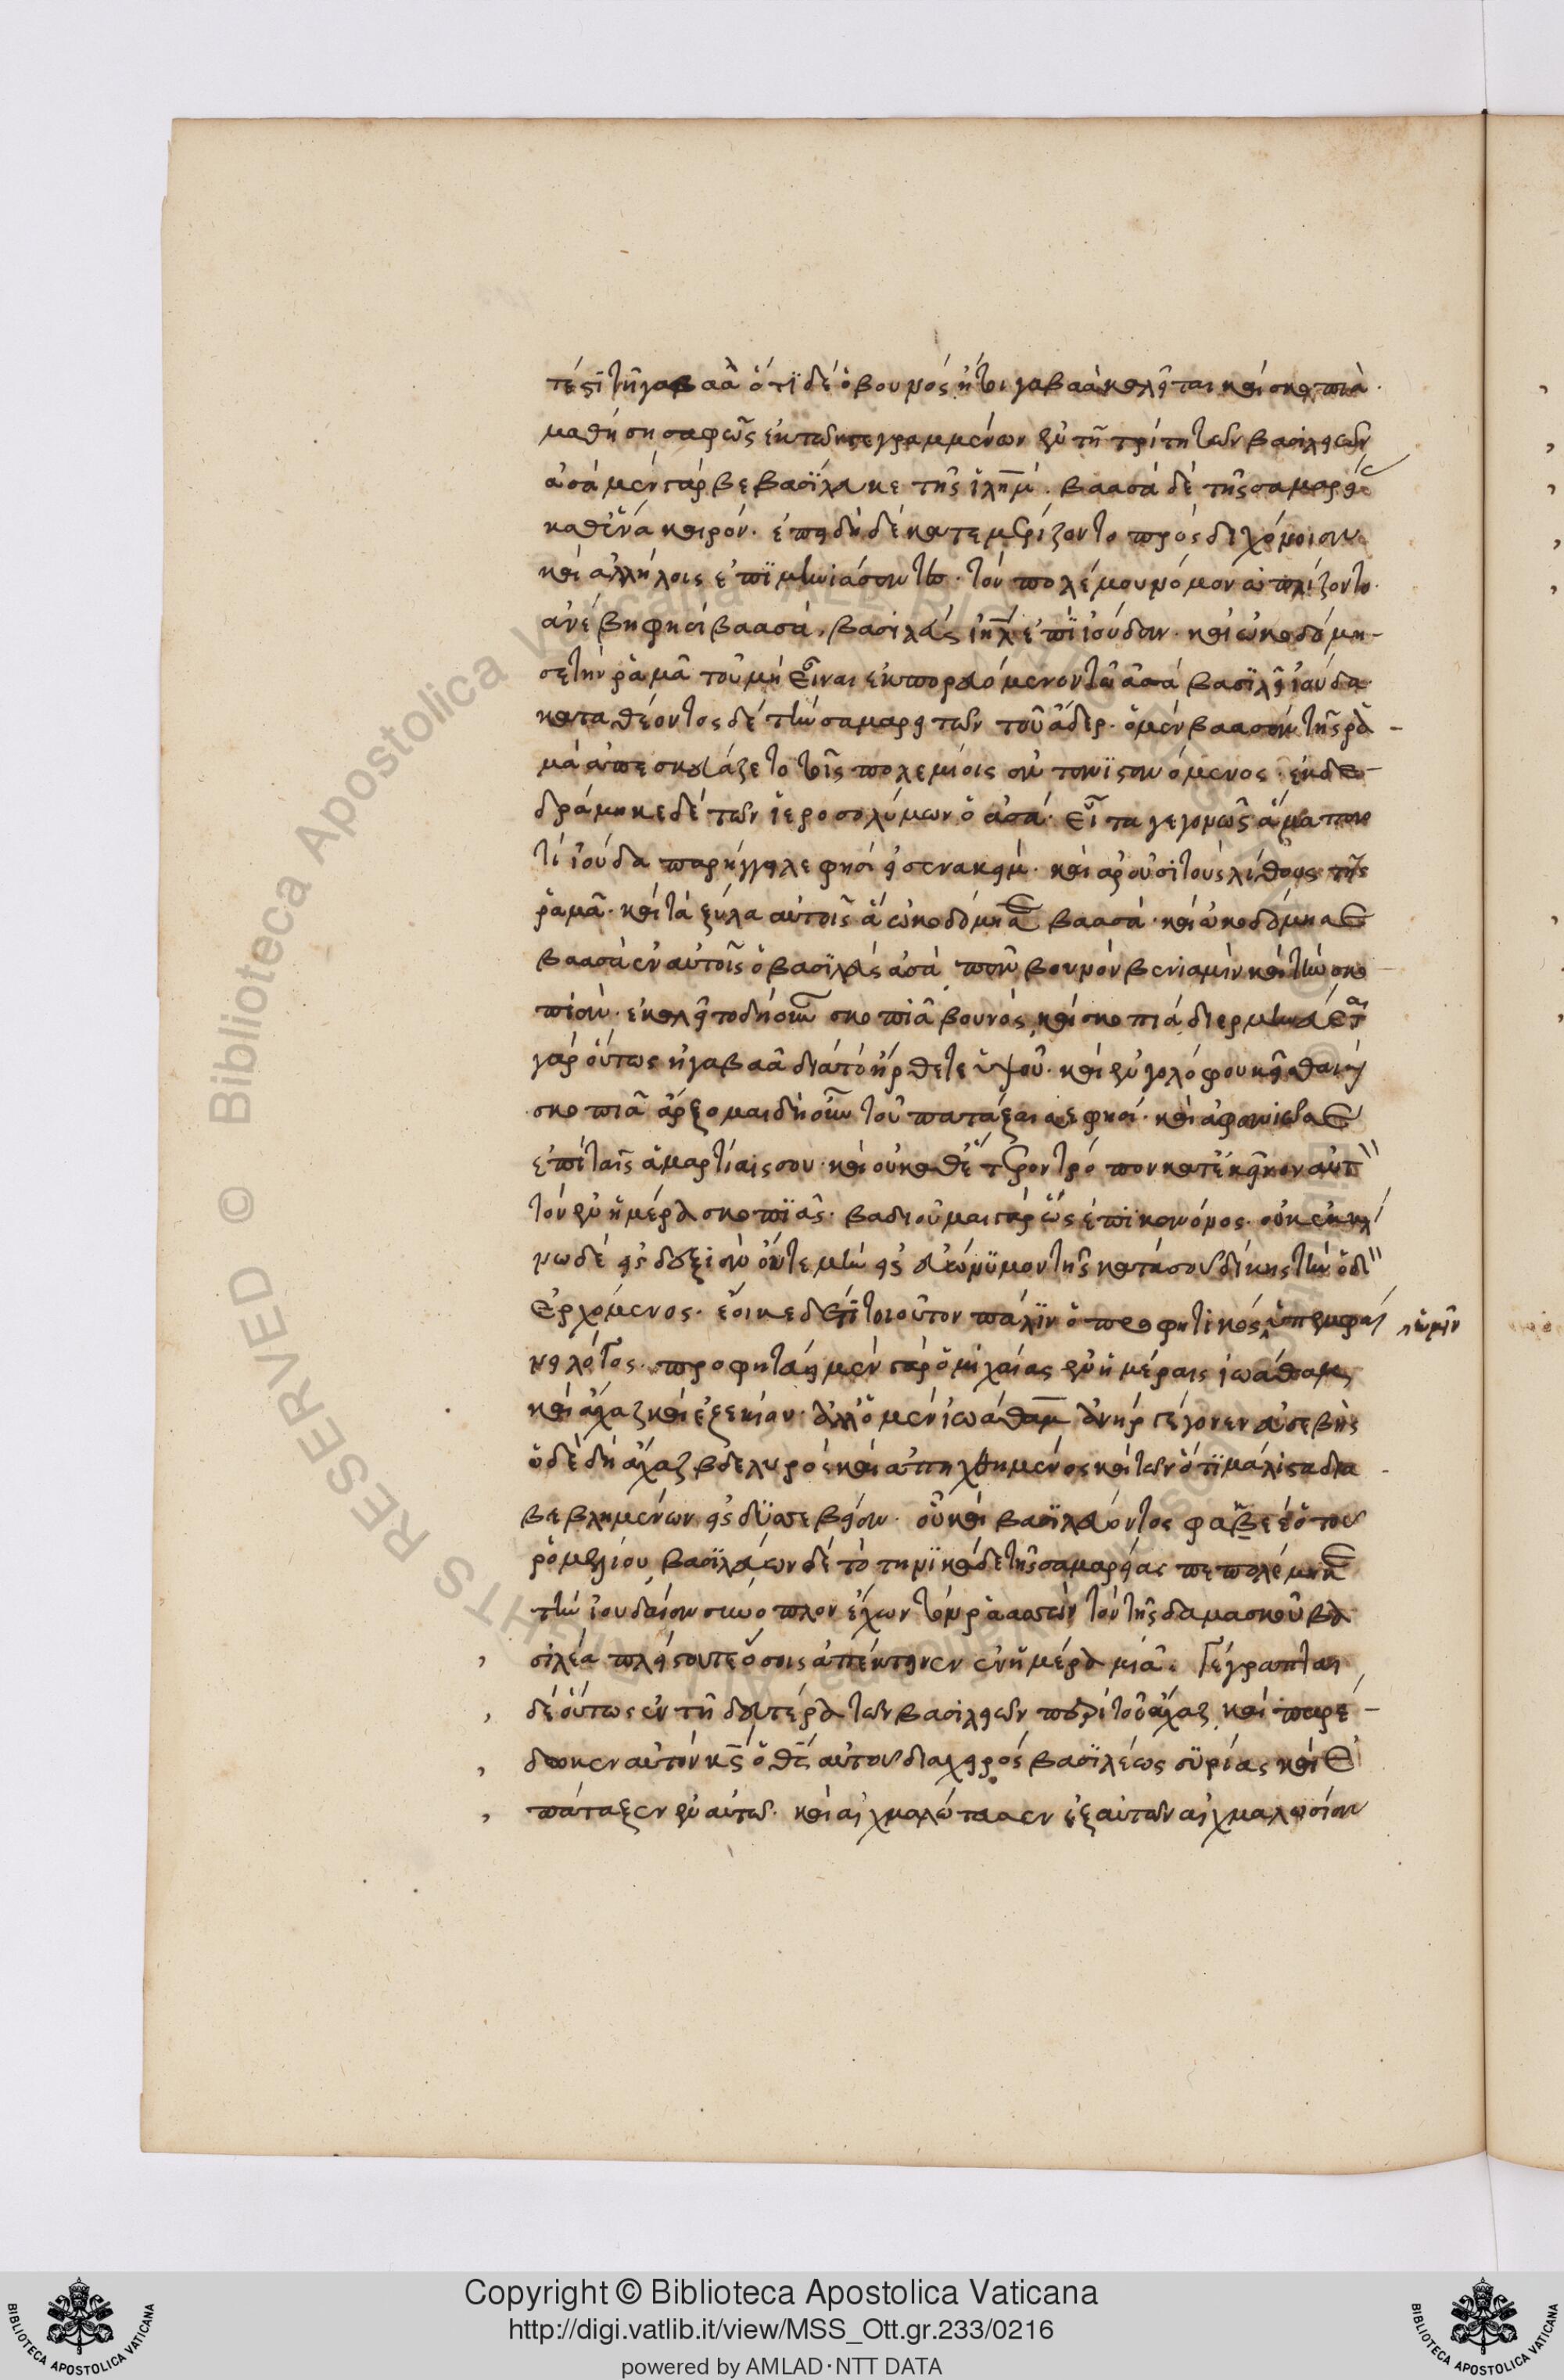 τέςι τῆ γαβαὰ ὅτι δὲ ὁ βουνὸς ἤτοι γαβαὰ καλεῖται καὶ σκοπιὰ.
μαθήση σαφῶς ἐκ τῶν γεγραμμένων ἐν τῆ τρίτη τῶν βασιλειῶν
ἀσὰ μὲν γὰρ βεβασίλευκε τῆς ἰλημ. βαασὰ δὲ τῆς σαμαρείας
καθ' ἕνα καιρόν. ἐπειδὴ δὲ κατεμερίζοντο πρὸς διχόνοιαν
καὶ ἀλλήλοις ἐπιμηνιάσαντες. τὸν πολέμου νόμον ὡπλίζοντο.
ἀνέβη φησὶ βαασὰ, βασιλεὺς ιηλ ἐπὶ ἰούδαν. καὶ ὠκοδόμη-
σε τὴν ῥαμᾶ τοῦ μὴ εἶναι ἐκπορευόμενον τῶ ἀσὰ βασιλεῖ ἰούδα.
καταθέοντος δὲ τὴν σαμαρειτῶν τοῦ ἄδερ. ὁ μὲν βαασὰν τῆς ῥα-
μὰ ἀπεσκευάζετο τοῖς πολεμίοις ἀντανιστάμενος. ἐκδε-
δράμηκε δὲ τῶν ἱεροσολύμων ὁ ἀσά. εἶτα γεγονὼς ἅμα παν
τὶ ἰούδα παρήγγειλε φησὶ εἰς ενακεὶμ. καὶ αἴρουσι τοὺς λίθους τῆς
ῥαμᾶ. καὶ τὰ ξύλα αὐτοῖς ἃ ὠκοδόμησε βαασὰ. καὶ ὠκοδόμησε
βαασὰ ἐν αὐτοῖς ὁ βασιλεὺς ἀσὰ πᾶν βουνὸν βενιαμὶν καὶ τὴν σκο
πιάν. ἐκαλεῖτο δὴ οὖν σκοπιὰ βουνὸς, καὶ σκοπιὰ διερμηνεύεται
γὰρ οὕτως ἡ γαβαὰ διὰ τὸ ἦρθε τε ὑψοῦ. καὶ ἐν γολόφου κεῖσθαι
σκοπιᾶ ἄρξομαι δὴ οὖν τοῦ πατάξαι σε φησί. καὶ ἀφανιῶ σε
ἐπὶ ταῖς ἁμαρτίαις σου. καὶ οὐ καθ' ἕτερον τρόπον κατ' ἐκεῖνον αὐτ
τὸν ἐν ἡμέρα σκοπιᾶς. βαδιοῦμαι γὰρ ὡς ἐπὶ καινόμος. οὐκ ἐκκλί
νω δὲ εἰς δεξιὰν οὔτε μὴν εἰς εὐώνυμον τῆς κατὰ σοῦ δίκης τὴν ὁδὸ
ἐρχόμενος. ἔοικε δέ τι τοιοῦτον πάλιν ὁ προφητικὸς ὑπεμφαί
νει λόγος. προφητεύει μὲν γὰρ ὁ μιχαίας ἐν ἡμέραις ἰωάθαμ,
ἡμῖν
καὶ ἄχαζ καὶ ἐζεκίου. ἀλλ' ὁ μὲν ἰωάθαμ ἀνὴρ γέγονεν εὐσεβὴς
ὁ δὲ δὴ ἄχαζ βδελυρὸς καὶ ἀπηχθημένος καὶ τῶν ὅτι μάλιστα δια
βεβλημένων εἰς δυσσεβείαν. οὗ καὶ βασιλεύοντος φαβεὲ ὁ τοῦ
ῥομελίου, βασιλεύων δὲ τὸ τηνικάδε τῆς σαμαρείας πεπολέμηκε
τὴν ἰουδαίαν συνόπλον ἔχων τὸν ῥαασὼν τὸν τῆς δαμασκοῦ βα
σιλέα πλείστους τε ὅσους ἀπέκτεινεν ἐν ἡμέρα μιᾶ. γέγραπται
δὲ οὕτως ἐν τῆ δευτέρα τῶν βασιλειῶν περὶ τοῦ ἄχαζ, καὶ παρέ-
δωκεν αὐτὸν κς ὁ θς αὐτοῦ διὰ χειρὸς βασιλέως συρίας καὶ ἐ
πάταξεν ἐν αὐτῶ. καὶ αἰχμαλώτευσεν ἐξ αὐτῶν αἰχμαλωσίαν
Biblioteca Apostolica Vaticana ALL RIGHTS RESERVED ©
Copyright © Biblioteca Apostolica Vaticana
http://digi.vatlib.it/view/MSS_Ott.gr.233/0216
powered by AMLAD·NTT DATA
BIBLIOTECA APOSTOLICA VATICANA
BIBLIOTECA APOSTOLICA VATICANA